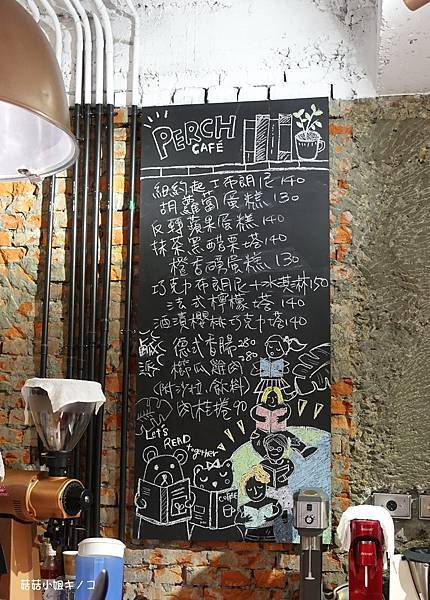 PERCH
CAFÉ
紐約起士布朗尼 140
胡蘿蔔蛋糕 130
反轉蘋果蛋糕 140
抹茶黑醋栗塔 140
橙香磅蛋糕 130
巧克力布朗尼+冰淇淋 150
法式檸檬塔 140
酒漬櫻桃巧克力塔 140
鹹派
德式香腸 280
櫛瓜雞肉 280
(附沙拉、飲料)
肉桂捲 90
Let's READ together
COFFEE
菇菇小姐キノコ